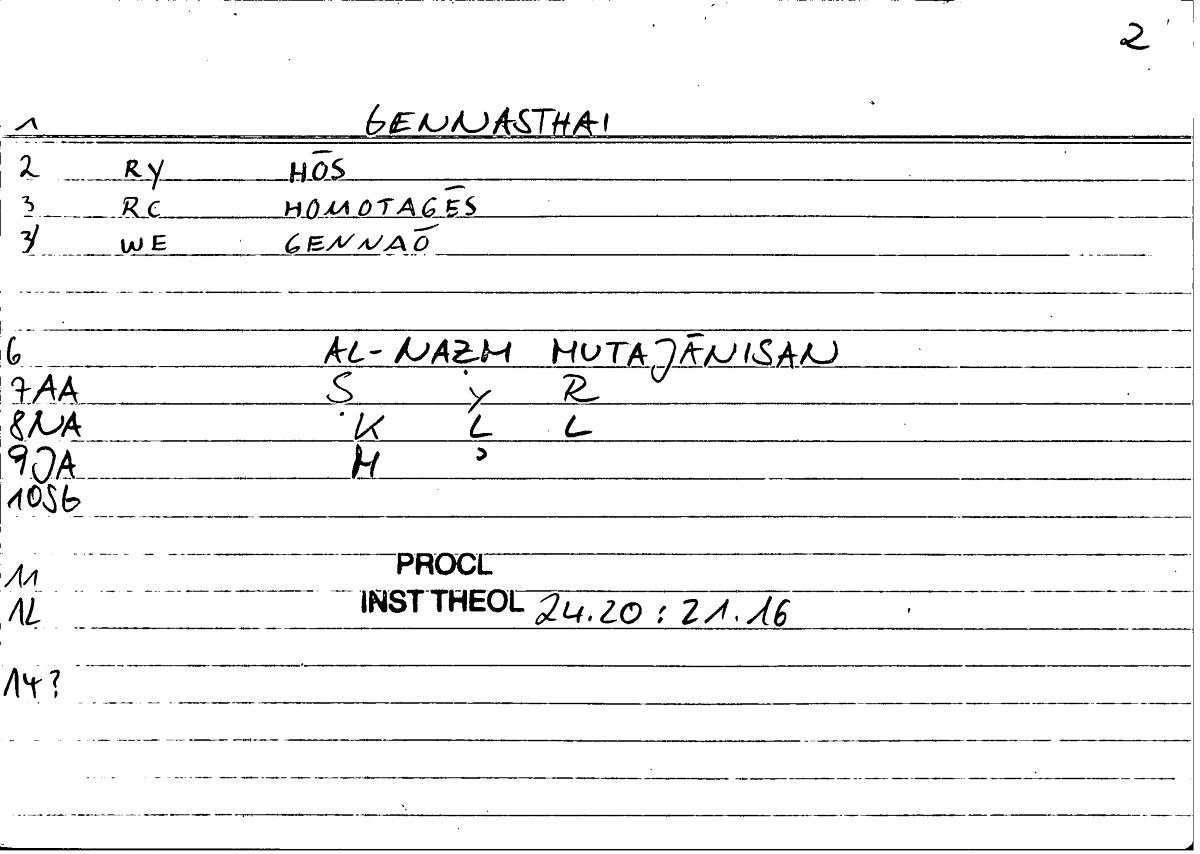 2
1 GENNASTHAI
2 RY HŌS
3 RC HOMOTAGĒS
3/ WE GENNAŌ
6 AL-NAẒM MUTAJĀNISAN
7AA Ṣ Y R
8NA K L L
9JA M ʾ
10SG
11 PROCL
12 INST THEOL 24.20 : 21.16
14?